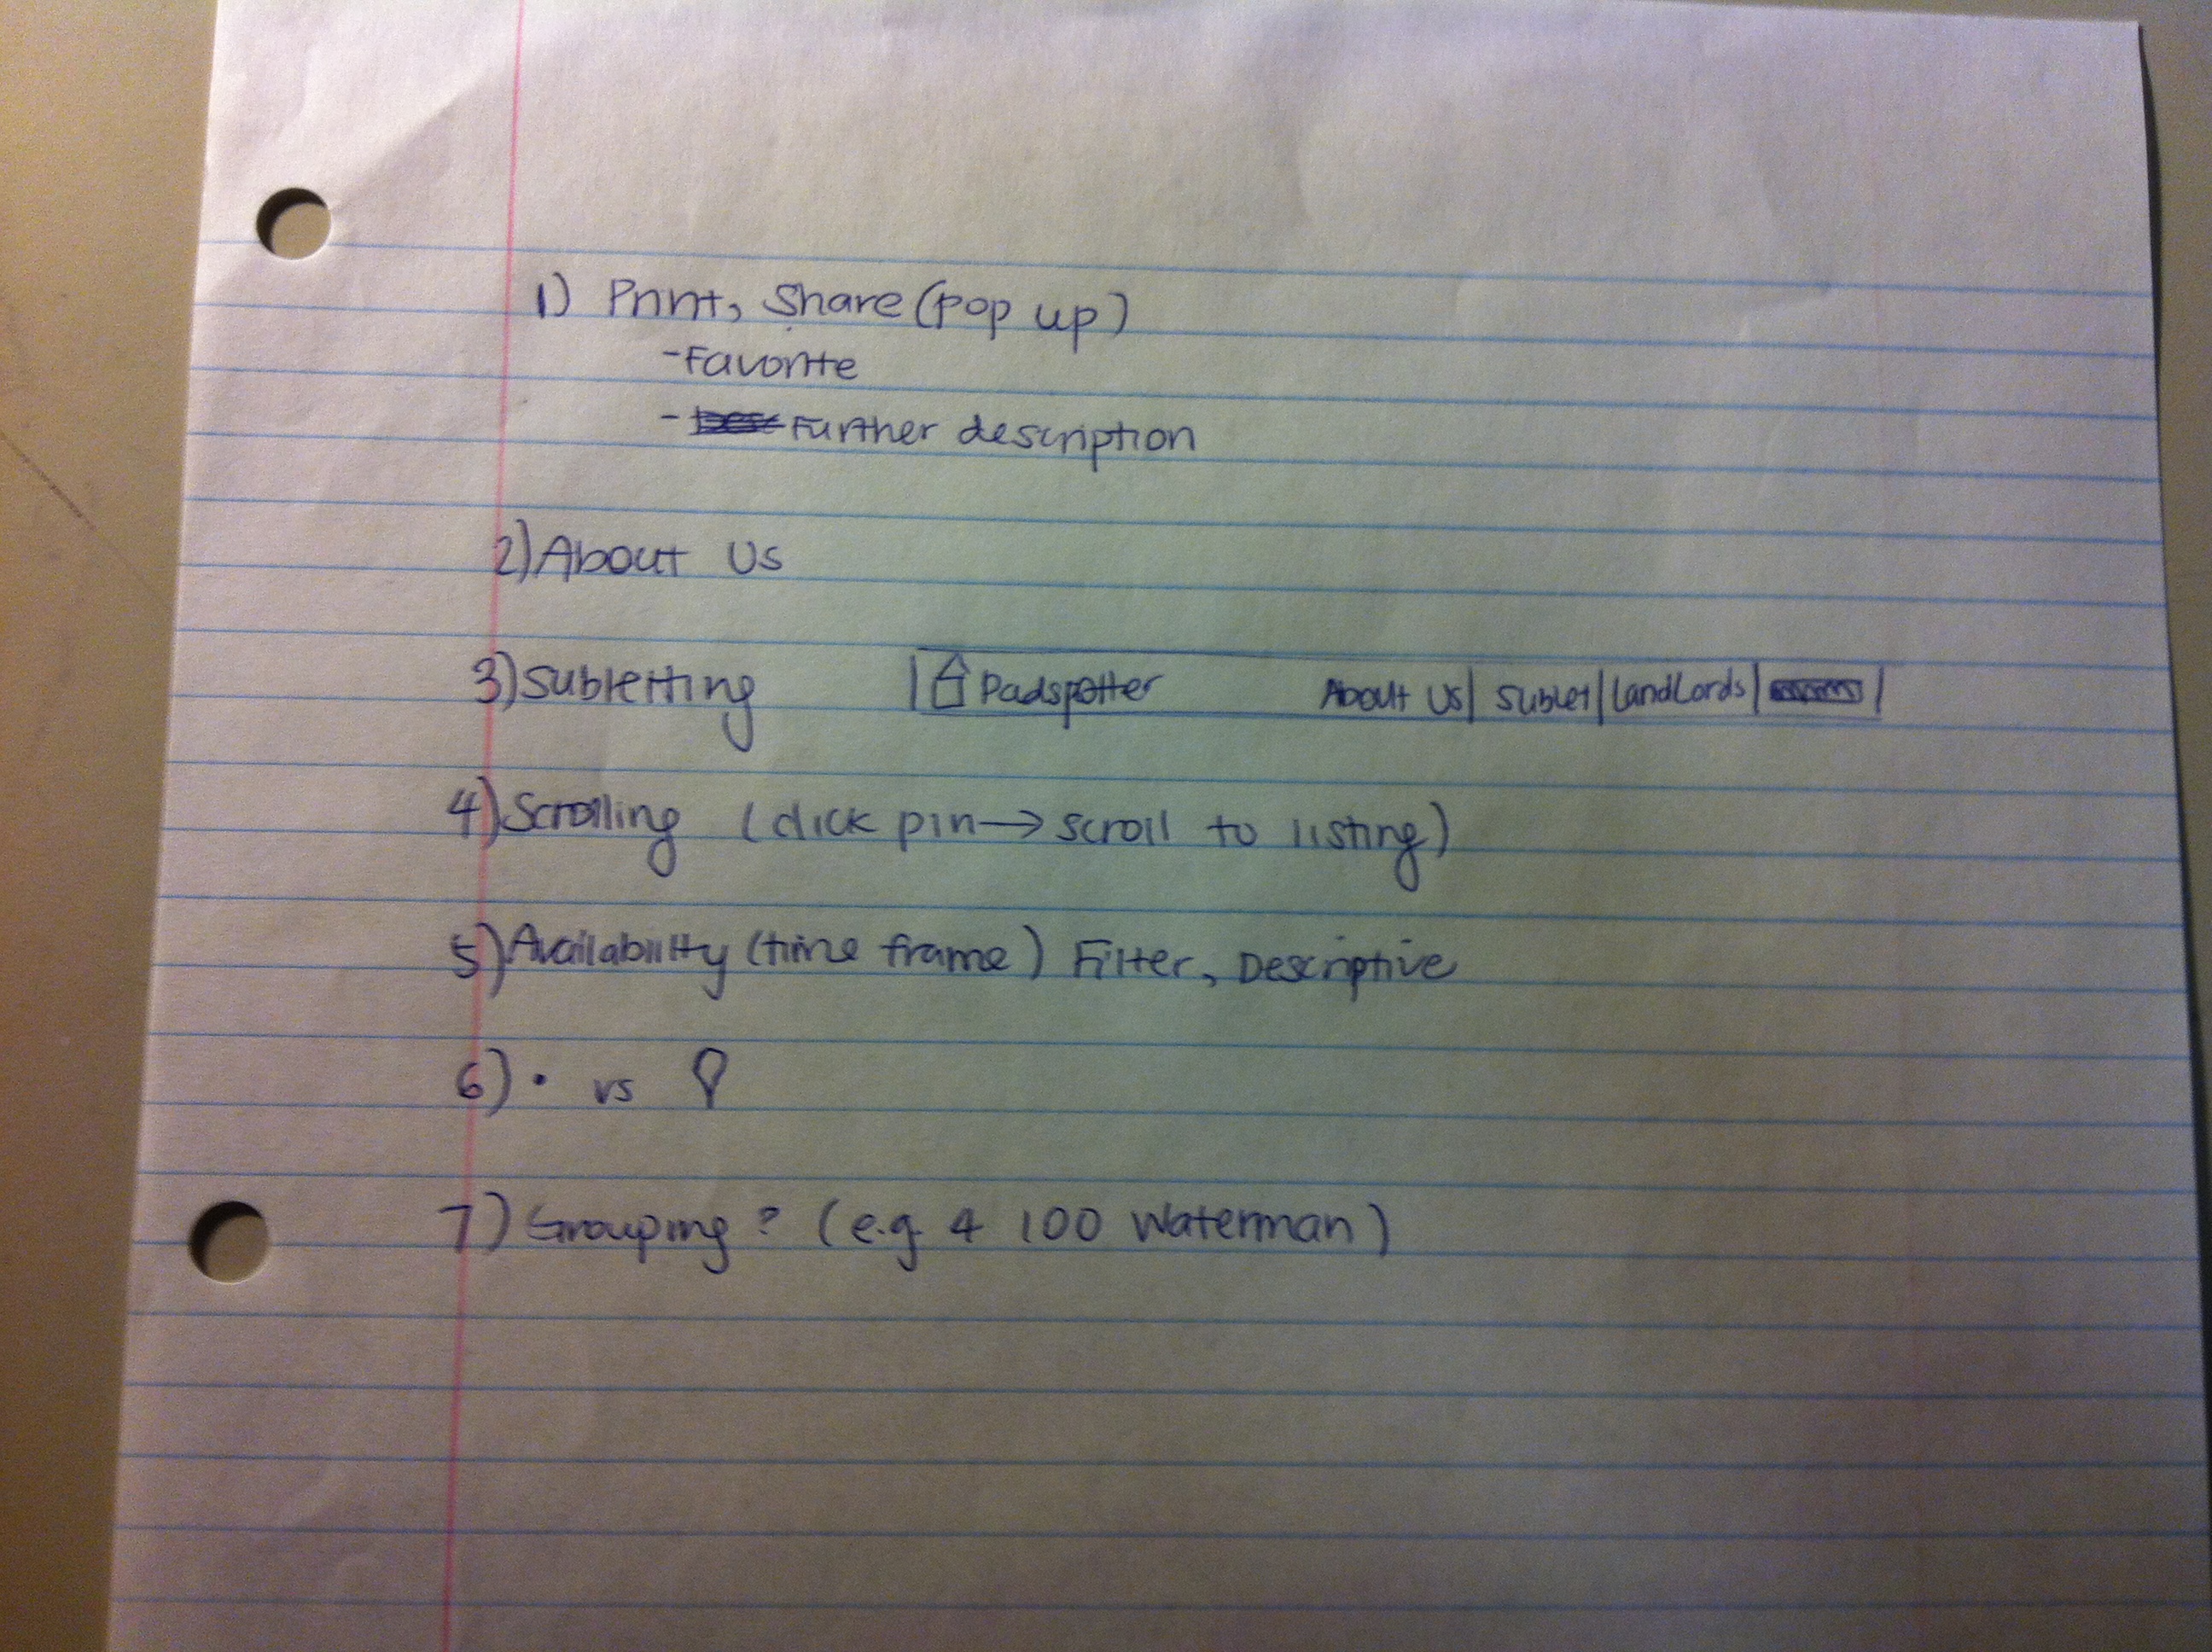 1) Print, Share (pop up)
- Favorite
- Further description
2) About Us
3) Subletting
Padspotter About Us | Sublet | Landlords |
4) Scrolling (click pin → scroll to listing)
5) Availability (time frame) Filter, Descriptive
6) • vs
7) Grouping? (e.g 4 100 Waterman)